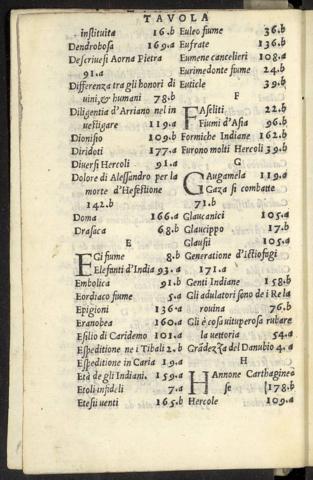 TAVOLA
instituita 16.b
Dendrobosa 169.a
Descriuesi Aorna Pietra
91.a
Differenza tra gli honori di
uini, & humani 78.b
Diligentia d'Arriano nel in
uestigare 119.a
Dionisio 109.b
Diridoti 177.a
Diuersi Hercoli 91.a
Dolore di Alessandro per la
morte d'Hefestione
142.b
Doma 166.a
Drasaca 68.b
E
EGi fiume 8.b
Elefanti d'India 93.a
Embolica 91.b
Eordiaco fiume 5.a
Epigioni 136.a
Eranobea 160.a
Esilio di Caridemo 101.a
Espeditione ne i Tibali 2.b
Espeditione in Caria 19.a
Età de gli Indiani. 159.a
Etoli infideli 7.a
Etesii uenti 165.b
Euleo fiume 36.b
Eufrate 136.b
Eumene cancelieri 108.a
Eurimedonte fiume 24.b
Euticle 39.b
F
FAseliti 22.b
Fiumi d'Asia 96.b
Formiche Indiane 162.b
Furono molti Hercoli 39.b
G
GAugamela 119.a
Gaza si combatte
71.b
Glaucanici 105.a
Glaucippo 17.b
Glausii 105.a
Generatione d'Ictiofagi
171.a
Genti Indiane 158.b
Gli adulatori sono de i Re la
rouina 76.b
Gli è cosa uituperosa rubare
la uettoria 54.a
Grãdezza del Danubio 4.a
H
HAnnone Carthaginese
se 178.b
Hercole 109.a